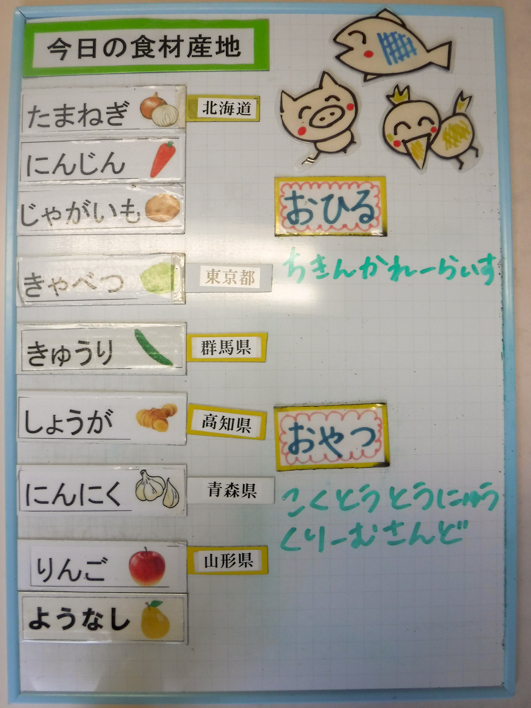 今日の食材産地
たまねぎ 北海道
にんじん
じゃがいも
きゃべつ 東京都
きゅうり 群馬県
しょうが 高知県
にんにく 青森県
りんご 山形県
ようなし
おひる
ちきんかれーらいす
おやつ
こくとうとうにゅう
くりーむさんど